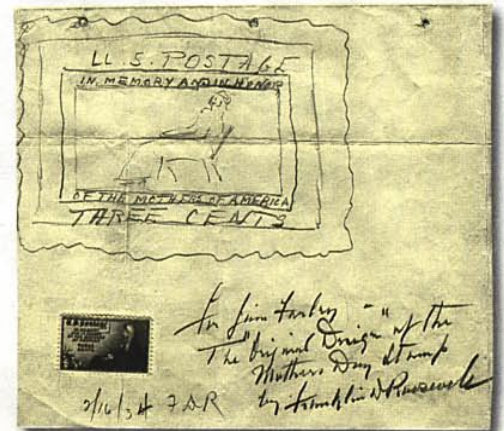 U. S. POSTAGE
IN MEMORY AND IN HONOR
OF THE MOTHERS OF AMERICA
THREE CENTS
For Jim Farley -
The "Original Design" of the
Mothers Day Stamp
by Franklin D Roosevelt
2/16/34 FDR